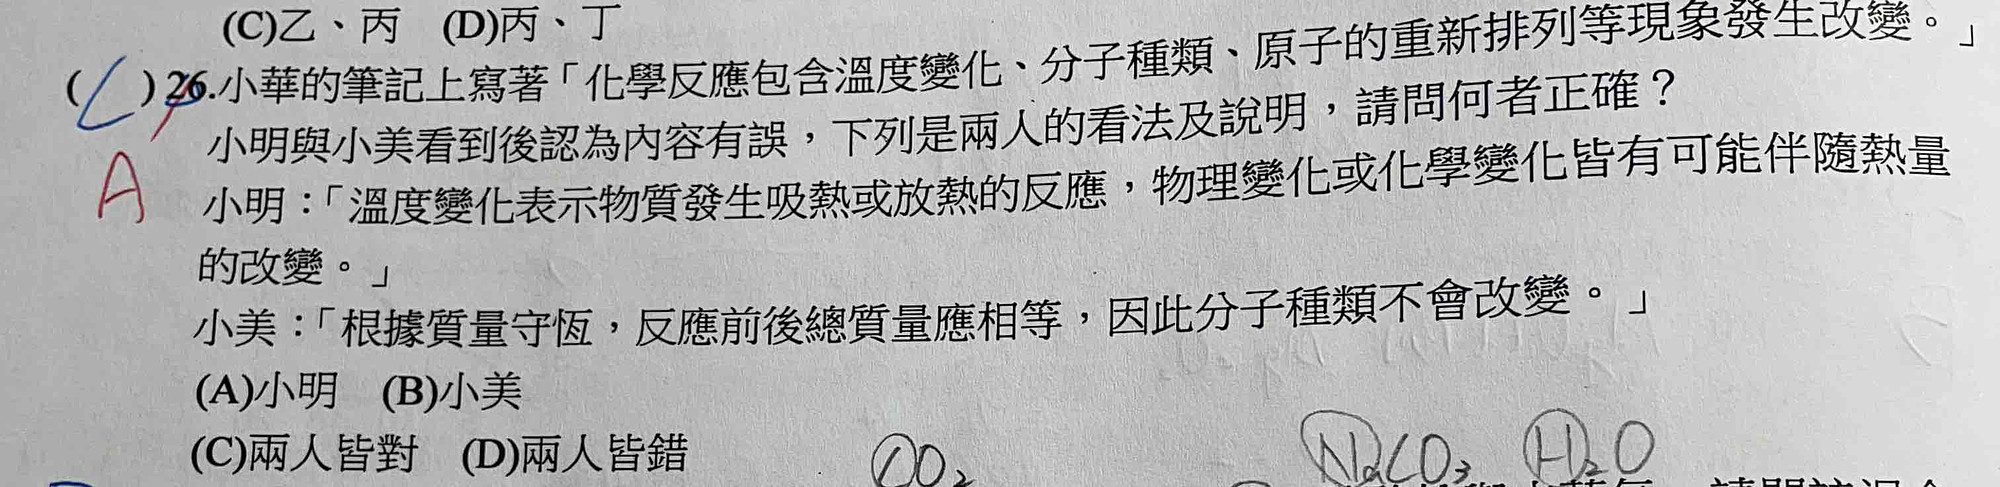 (C)乙、丙 (D)丙、丁
( C )26.小華的筆記上寫著「化學反應包含溫度變化、分子種類、原子的重新排列等現象發生改變。」
小明與小美看到後認為內容有誤，下列是兩人的看法及說明，請問何者正確？
A
小明：「溫度變化表示物質發生吸熱或放熱的反應，物理變化或化學變化皆有可能伴隨熱量
的改變。」
小美：「根據質量守恆，反應前後總質量應相等，因此分子種類不會改變。」
(A)小明 (B)小美
(C)兩人皆對 (D)兩人皆錯
CO2 NaCO3 H2O